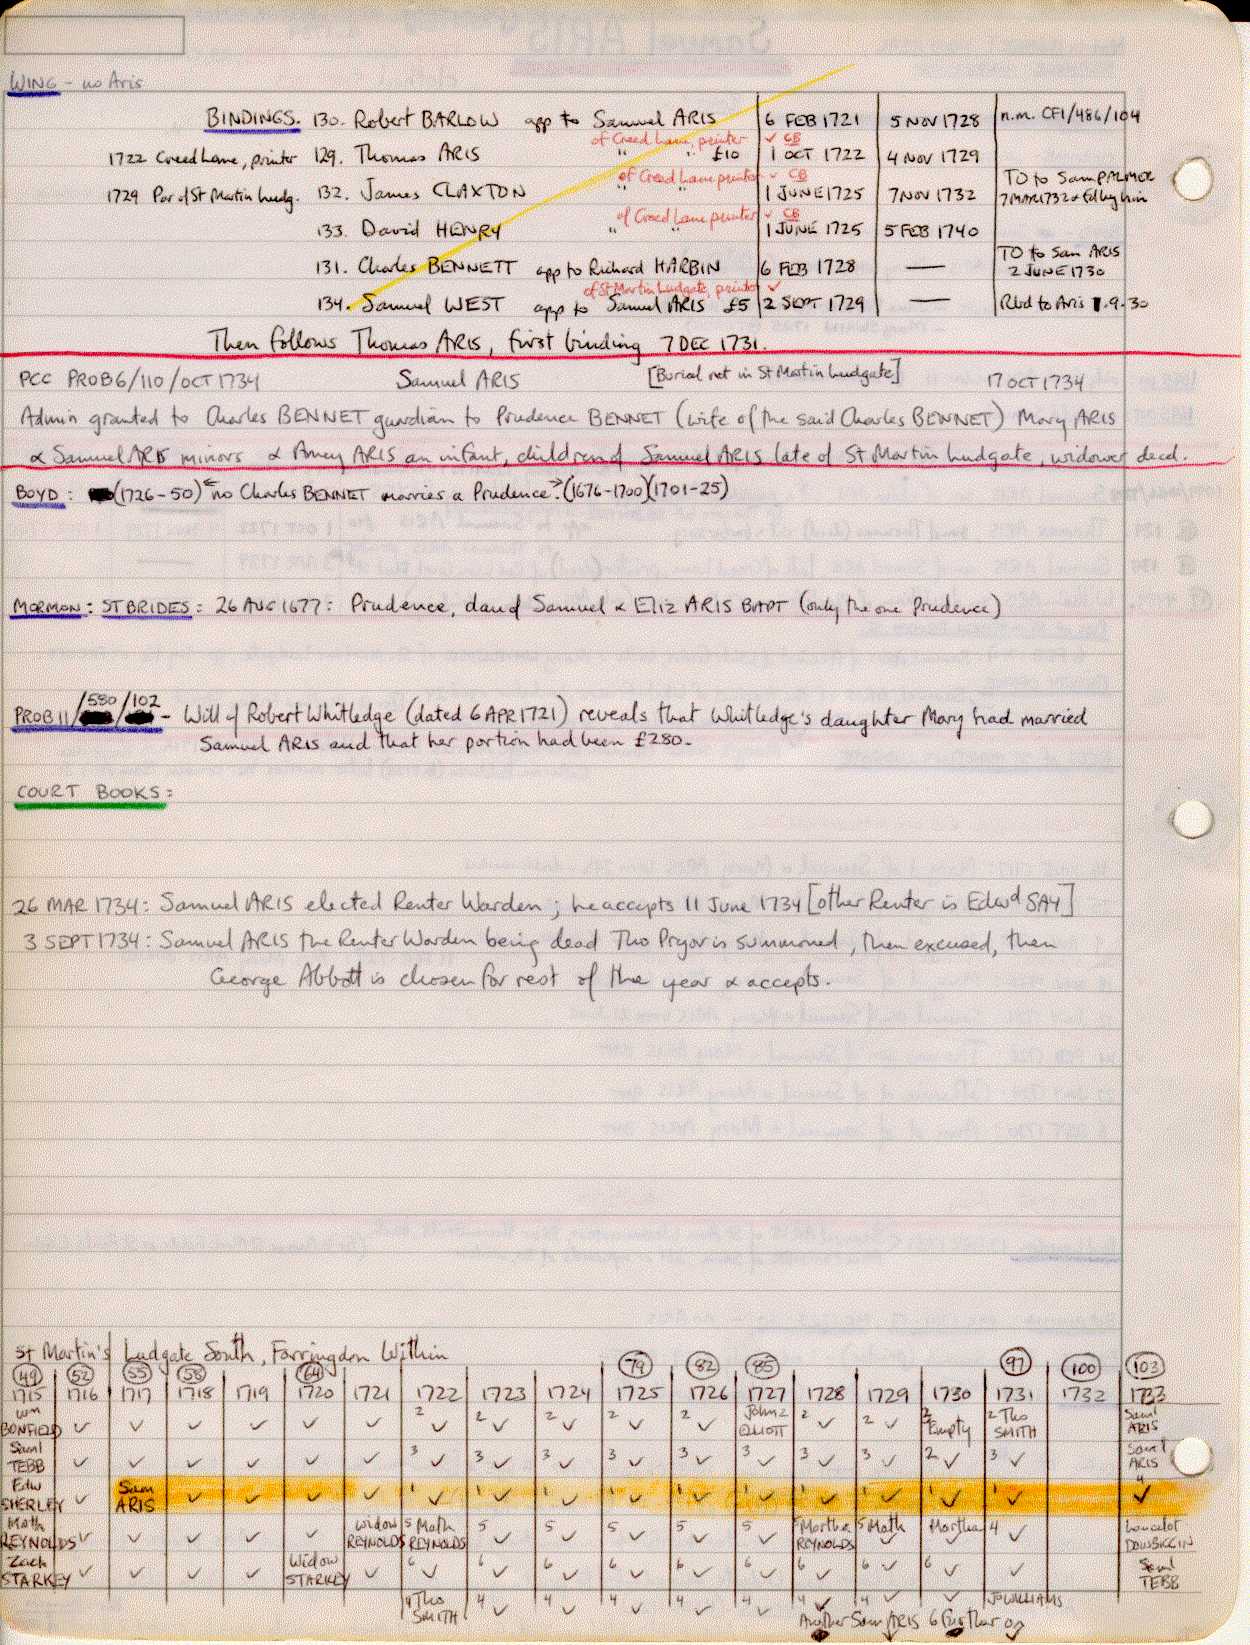 WING - no Aris
BINDINGS. 130. Robert BARLOW app to Samuel ARIS 6 FEB 1721 5 NOV 1728 n.m. CF1/486/104
of Creed Lane, printer ✓ CB
1722 Creed Lane, printer 129. Thomas ARIS " " £10 1 OCT 1722 4 NOV 1729
of Creed Lane printer ✓ CB
1729 Par of St Martin Ludg. 132. James CLAXTON " " 1 JUNE 1725 7 NOV 1732 TO to Sam PALMER
7 MAR 1732 & Fd by him
of Creed Lane printer ✓ CB
133. David HENRY " " 1 JUNE 1725 5 FEB 1740
131. Charles BENNETT app to Richard HARBIN 6 FEB 1728 — TO to Sam ARIS
2 JUNE 1730
of St Martin Ludgate, printer ✓
134. Samuel WEST app to Samuel ARIS £5 2 SEPT 1729 — Rtd to Aris 1.9.30
Then follows Thomas ARIS, first binding 7 DEC 1731.
PCC PROB6/110/OCT 1734 Samuel ARIS [Burial not in St Martin Ludgate] 17 OCT 1734
Admin granted to Charles BENNET guardian to Prudence BENNET (wife of the said Charles BENNET) Mary ARIS
& Samuel ARIS minors & Amey ARIS an infant, children of Samuel ARIS late of St Martin Ludgate, widower decd.
BOYD: (1726-50) ← no Charles BENNET marries a Prudence. → (1676-1700)(1701-25)
MORMON: ST BRIDES: 26 AUG 1677: Prudence, dau of Samuel & Eliz ARIS BAPT (only the one Prudence)
PROB 11/580/102 - Will of Robert Whitledge (dated 6 APR 1721) reveals that Whitledge's daughter Mary had married
Samuel ARIS and that her portion had been £280.
COURT BOOKS:
26 MAR 1734: Samuel ARIS elected Renter Warden; he accepts 11 June 1734 [other Renter is Edwd SAY]
3 SEPT 1734: Samuel ARIS the Renter Warden being dead Tho Pryor is summoned, then excused, then
George Abbott is chosen for rest of the year & accepts.
St Martin's Ludgate South, Farringdon Within
49 52 55 58 64 79 82 85 97 100 103
1715 1716 1717 1718 1719 1720 1721 1722 1723 1724 1725 1726 1727 1728 1729 1730 1731 1732 1733
Wm BONFIELD ✓ ✓ ✓ ✓ ✓ ✓ 2 ✓ 2 ✓ 2 ✓ 2 ✓ 2 ✓ John 2 ELLIOTT 2 ✓ 2 ✓ 2 Empty 2 Tho SMITH Saml ARIS
Saml TEBB ✓ ✓ ✓ ✓ ✓ ✓ 3 ✓ 3 ✓ 3 ✓ 3 ✓ 3 ✓ 3 ✓ 3 ✓ 3 ✓ 2 ✓ 3 ✓ Saml ARIS
Edw SHERLEY ✓ Sam ARIS ✓ ✓ ✓ ✓ 1 ✓ 1 ✓ 1 ✓ 1 ✓ 1 ✓ 1 ✓ 1 ✓ 1 ✓ 1 ✓ 1 ✓ 4 ✓
Math REYNOLDS ✓ ✓ ✓ ✓ ✓ Widow REYNOLDS 5 Math REYNOLDS 5 ✓ 5 ✓ 5 ✓ 5 ✓ 5 ✓ 5 Martha REYNOLDS 5 Math ✓ Martha ✓ 4 ✓ Lancelot DOWBIGGIN
Zach STARKEY ✓ ✓ ✓ ✓ Widow STARKEY ✓ 6 ✓ 6 ✓ 6 ✓ 6 ✓ 6 ✓ 6 ✓ 6 ✓ 6 ✓ 6 ✓ ✓ Saml TEBB
4 Tho SMITH 4 ✓ 4 ✓ 4 ✓ 4 ✓ 4 ✓ 4 ✓ 4 ✓ ✓ Jo WILLIAMS
Another Sam ARIS 6 further on